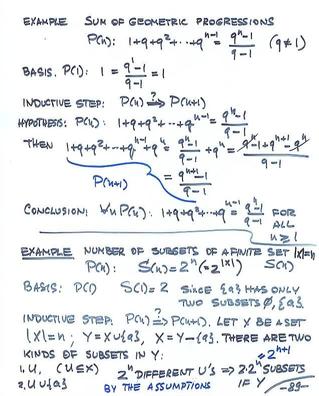 EXAMPLE SUM OF GEOMETRIC PROGRESSIONS
P(n): 1+q+q²+···+qⁿ⁻¹ = (qⁿ-1)/(q-1) (q≠1)
BASIS. P(1): 1 = (q¹-1)/(q-1) = 1
INDUCTIVE STEP: P(n) ?⇒ P(n+1)
HYPOTHESIS: P(n): 1+q+q²+···+qⁿ⁻¹ = (qⁿ-1)/(q-1)
THEN 1+q+q²+···+qⁿ⁻¹+qⁿ = (qⁿ-1)/(q-1) + qⁿ = (qⁿ-1+qⁿ⁺¹-qⁿ)/(q-1)
P(n+1) = (qⁿ⁺¹-1)/(q-1)
CONCLUSION: ∀n P(n): 1+q+q²+···+qⁿ⁻¹ = (qⁿ-1)/(q-1) FOR ALL n≥1
EXAMPLE NUMBER OF SUBSETS OF A FINITE SET |X|=n
P(n): S(n)=2ⁿ (=2^|X|) S(n)
BASIS: P(1) S(1)=2 SINCE {a} HAS ONLY
TWO SUBSETS ∅, {a}.
INDUCTIVE STEP: P(n) ?⇒ P(n+1). LET X BE A SET
|X|=n; Y=X∪{a}, X=Y-{a}. THERE ARE TWO
KINDS OF SUBSETS IN Y: =2ⁿ⁺¹
1. U, (U⊆X) 2ⁿ DIFFERENT U'S ⇒ 2·2ⁿ SUBSETS
2. U∪{a} BY THE ASSUMPTIONS IF Y -89-